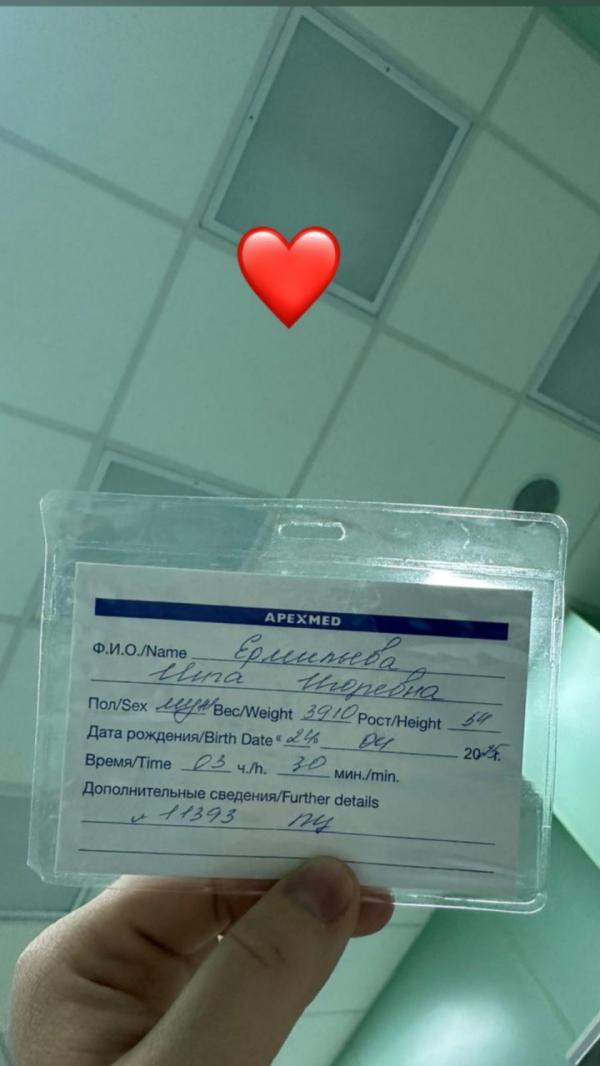 APEXMED
Ф.И.О./Name Ермильева
Инга Игоревна
Пол/Sex муж Вес/Weight 3910 Рост/Height 54
Дата рождения/Birth Date « 24 04 2025г.
Время/Time 03 ч./h. 30 мин./min.
Дополнительные сведения/Further details
11393 ПЦ